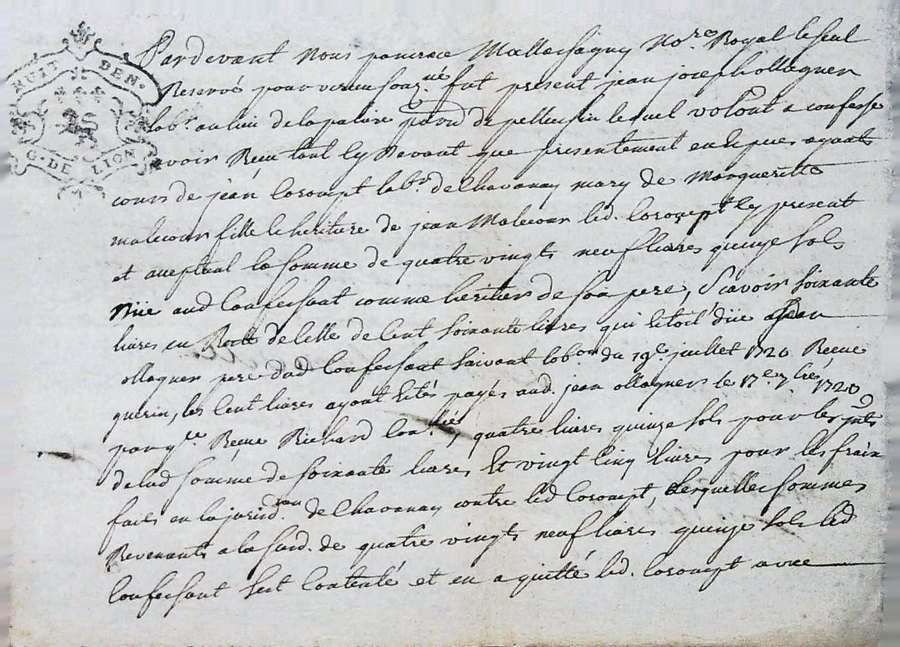 HUIT DEN.
G. DE LION
Pardevant Nous pancrace Mallassagny No.re Royal le seul
Reservé pour vireu souz.né fut present jean joseph ollagner
lab.r au lieu de la palure parr.e de pellussin lequel volont a confessé
avoir Receu tant cy devant que presentement en espces ayant
cours de jean Coronpt lab.r de Chavanay mary de Margueritte
malecour fille & heritiere de jean Malecour led. Coronpt cy present
et aceptant la somme de quatre vingts neuf livres quinze sols
düe aud Confessant comme heritier de son pere, Scavoir soixante
livres en Reste de celle de Cent soixante livres qui etoit düe a jean
ollagner pere dud Confessant suivant lob.on du 19.e juillet 1720 Receue
guerin, les Cent livres ayant étés payés aud. jean ollagner le 17.e 7bre 1720
par q.ce Receue Richard Con.lée, quatre livres quinze sols pour les jnts
de lad somme de soixante livres Et vingt Cinq livres pour les frais
faits en la jurid.tion de Chavanay contre led Coronpt, Lesquelles sommes
Revenants a la susd. de quatre vingts neuf livres quinze sols led
Confessant sest Contenté et en a quitté led. Coronpt avec